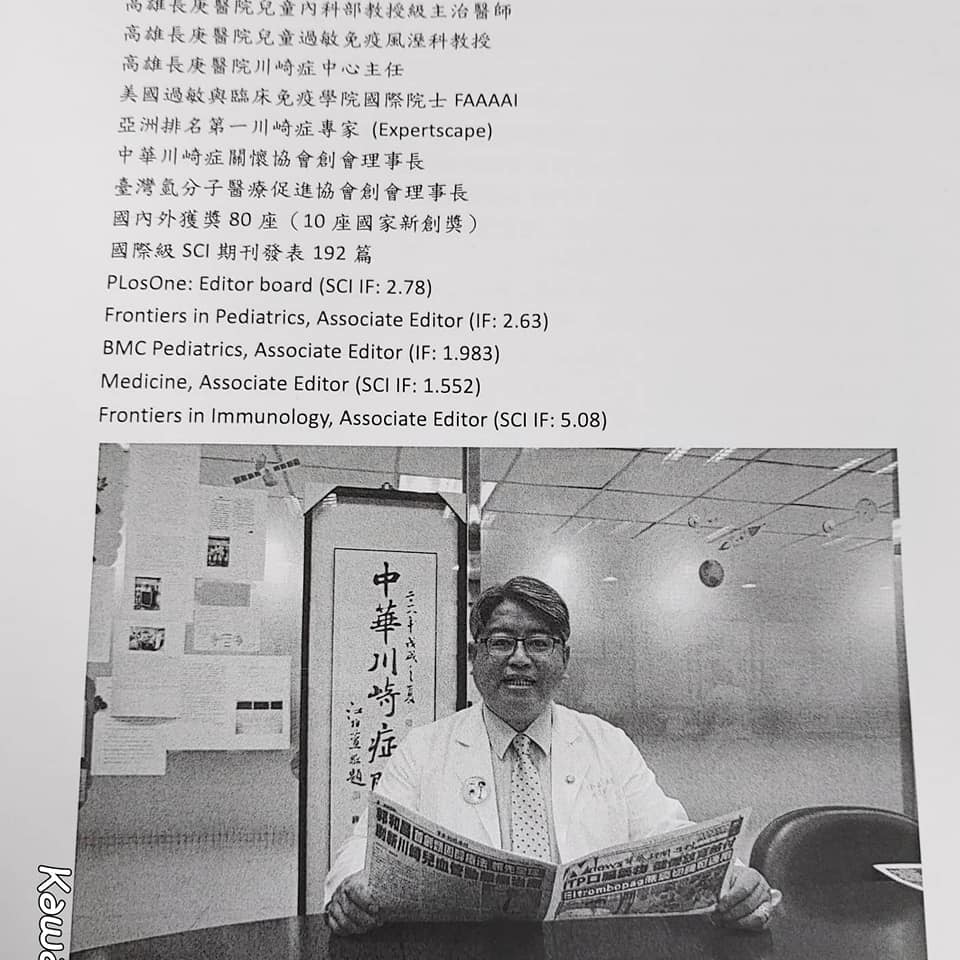 高雄長庚醫院兒童內科部教授級主治醫師
高雄長庚醫院兒童過敏免疫風溼科教授
高雄長庚醫院川崎症中心主任
美國過敏與臨床免疫學院國際院士 FAAAAI
亞洲排名第一川崎症專家 (Expertscape)
中華川崎症關懷協會創會理事長
臺灣氫分子醫療促進協會創會理事長
國內外獲獎 80 座（10 座國家新創獎）
國際級 SCI 期刊發表 192 篇
PLosOne: Editor board (SCI IF: 2.78)
Frontiers in Pediatrics, Associate Editor (IF: 2.63)
BMC Pediatrics, Associate Editor (IF: 1.983)
Medicine, Associate Editor (SCI IF: 1.552)
Frontiers in Immunology, Associate Editor (SCI IF: 5.08)
中華川崎症
郭和昌
Eltrombopag
Kawa